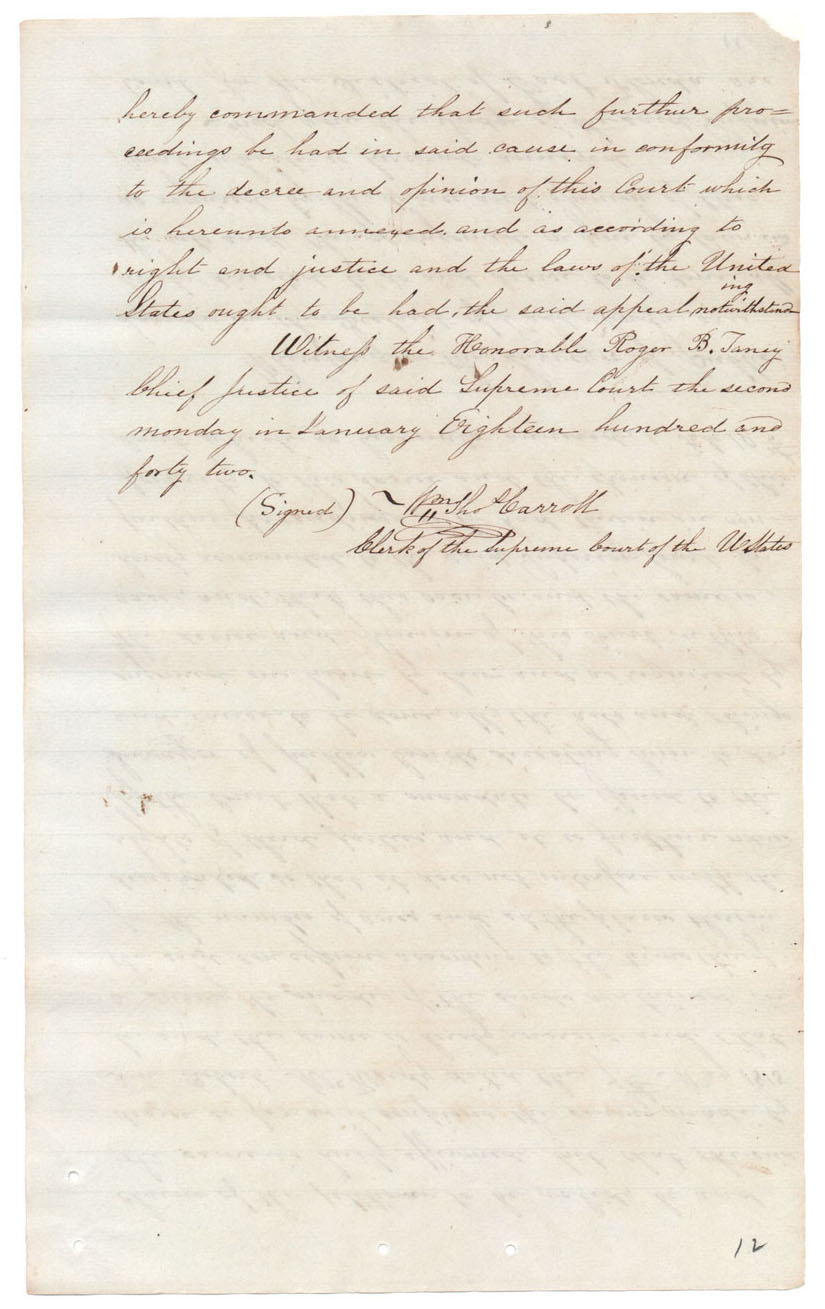 hereby commanded that such further pro=
ceedings be had in said cause in conformity
to the decree and opinion of this Court which
is hereunto annexed and as according to
right and justice and the laws of the United
States ought to be had, the said appeal notwithstand
ing
Witness the Honorable Roger B. Taney
Chief Justice of said Supreme Court the second
monday in January Eighteen hundred and
forty two.
(Signed) Wm Tho Carroll
Clerk of the Supreme Court of the U States
12